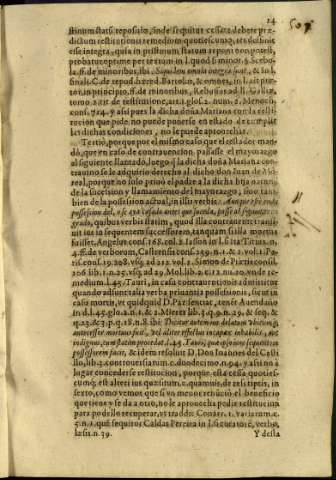 24
507
stinum statū repositū, inde sequitur cessare debere præ-
dictum restitutionis remedium quotiescunq; res desinit
esse integra, quia in pristinum statum reponi non potest,
probatur optime per textum in l. quod si minor. §. Scevo-
la. ff. de minoribus, ibi: Si quidem omnia integra sint, & in l.
finali. C. de reputationibus, Bartol. &
tor. in principio, ff. de minoribus, Rebuffus ad ll. Galliæ,
tom. 2. tit. de restitutione, art. 1. glos. 2. num. 2. Menoch.
cons. 714. y assi pues la dicha doña Mariana con la resti-
tucion que pide no puede ponerse en estado de cumplir
las dichas condiciones, no se puede aprouechar.
Tertiò, porque por el mismo caso que el testador man-
dò, que en caso de contrauencion passasse el mayorazgo
al siguiente llamado, luego q̃ la dicha doña Mariana con-
trauino se le adquirio derecho al dicho don Iuan de Mō-
real, porque no solo priuò el padre a la dicha hija
de la sucession y llamamiento del mayorazgo, sino tam-
bien de la possession actual, in illis verbis: Aunque esté en la
possession del, o se aya casado antes que suceda, passe al siguiente en
grado, quibus verbis statim, quod illa contrauenit transi-
uit ius in sequentem successorem, tanquam si illa mortua
fuisset, Angelus cons. 168. col. 2. Iasson in l. si ita Titus. n.
4. ff. de verborum, Castrensis cons. 159. n. 1. & 2. vol. 1. Pa-
ris. cons. 19. 208. vsq; ad 212. vol. 1. Simon de Prætis consil.
106. lib. 1. n. 25. vsq; ad 29. Mol. lib. 2. c. 12. nu. 10. vnde re-
medium l. 45. Tauri, in casu contrauentionis admittitur
quando adsunt talia verba priuantia possessionis, sicut in
casu mortis, vt quidquid D. Paz sentiat, tenet Auendaño
in d. l. 45. glo. 2. n. 1. & 2. Mieres lib. 3. q. 9. n. 29. & seq. &
q. 23. & 3. p. q. 18. n. 8. ibi:
antecessor mortuus fuit, vel aliter effectus incapax inhabilis, aut
indignus, cum statim procedat l. 45. Tauri, quæ ipso iure sequenti in
possessorem facit, & idem resoluit D. Don Ioannes del Casti-
llo, lib. 2. controuersiarum c. duodecimo n. 94. y assi no à
lugar concederse restitucion, porque esta cessa quoties-
cumq; est alteri ius quæsitum, e, quamuis de restitutis, in
sexto, como vemos que si vn menor renunciò el beneficio
que tiene y se da a otro, no le aprouecha pedir restitucion
para podello recuperar, vt tradit Couar. 1. variarum. c.
5. n. 1. quē sequitor Caldas Pereira in l. si curatorē, verbo,
læsis. n. 39.
Y desta